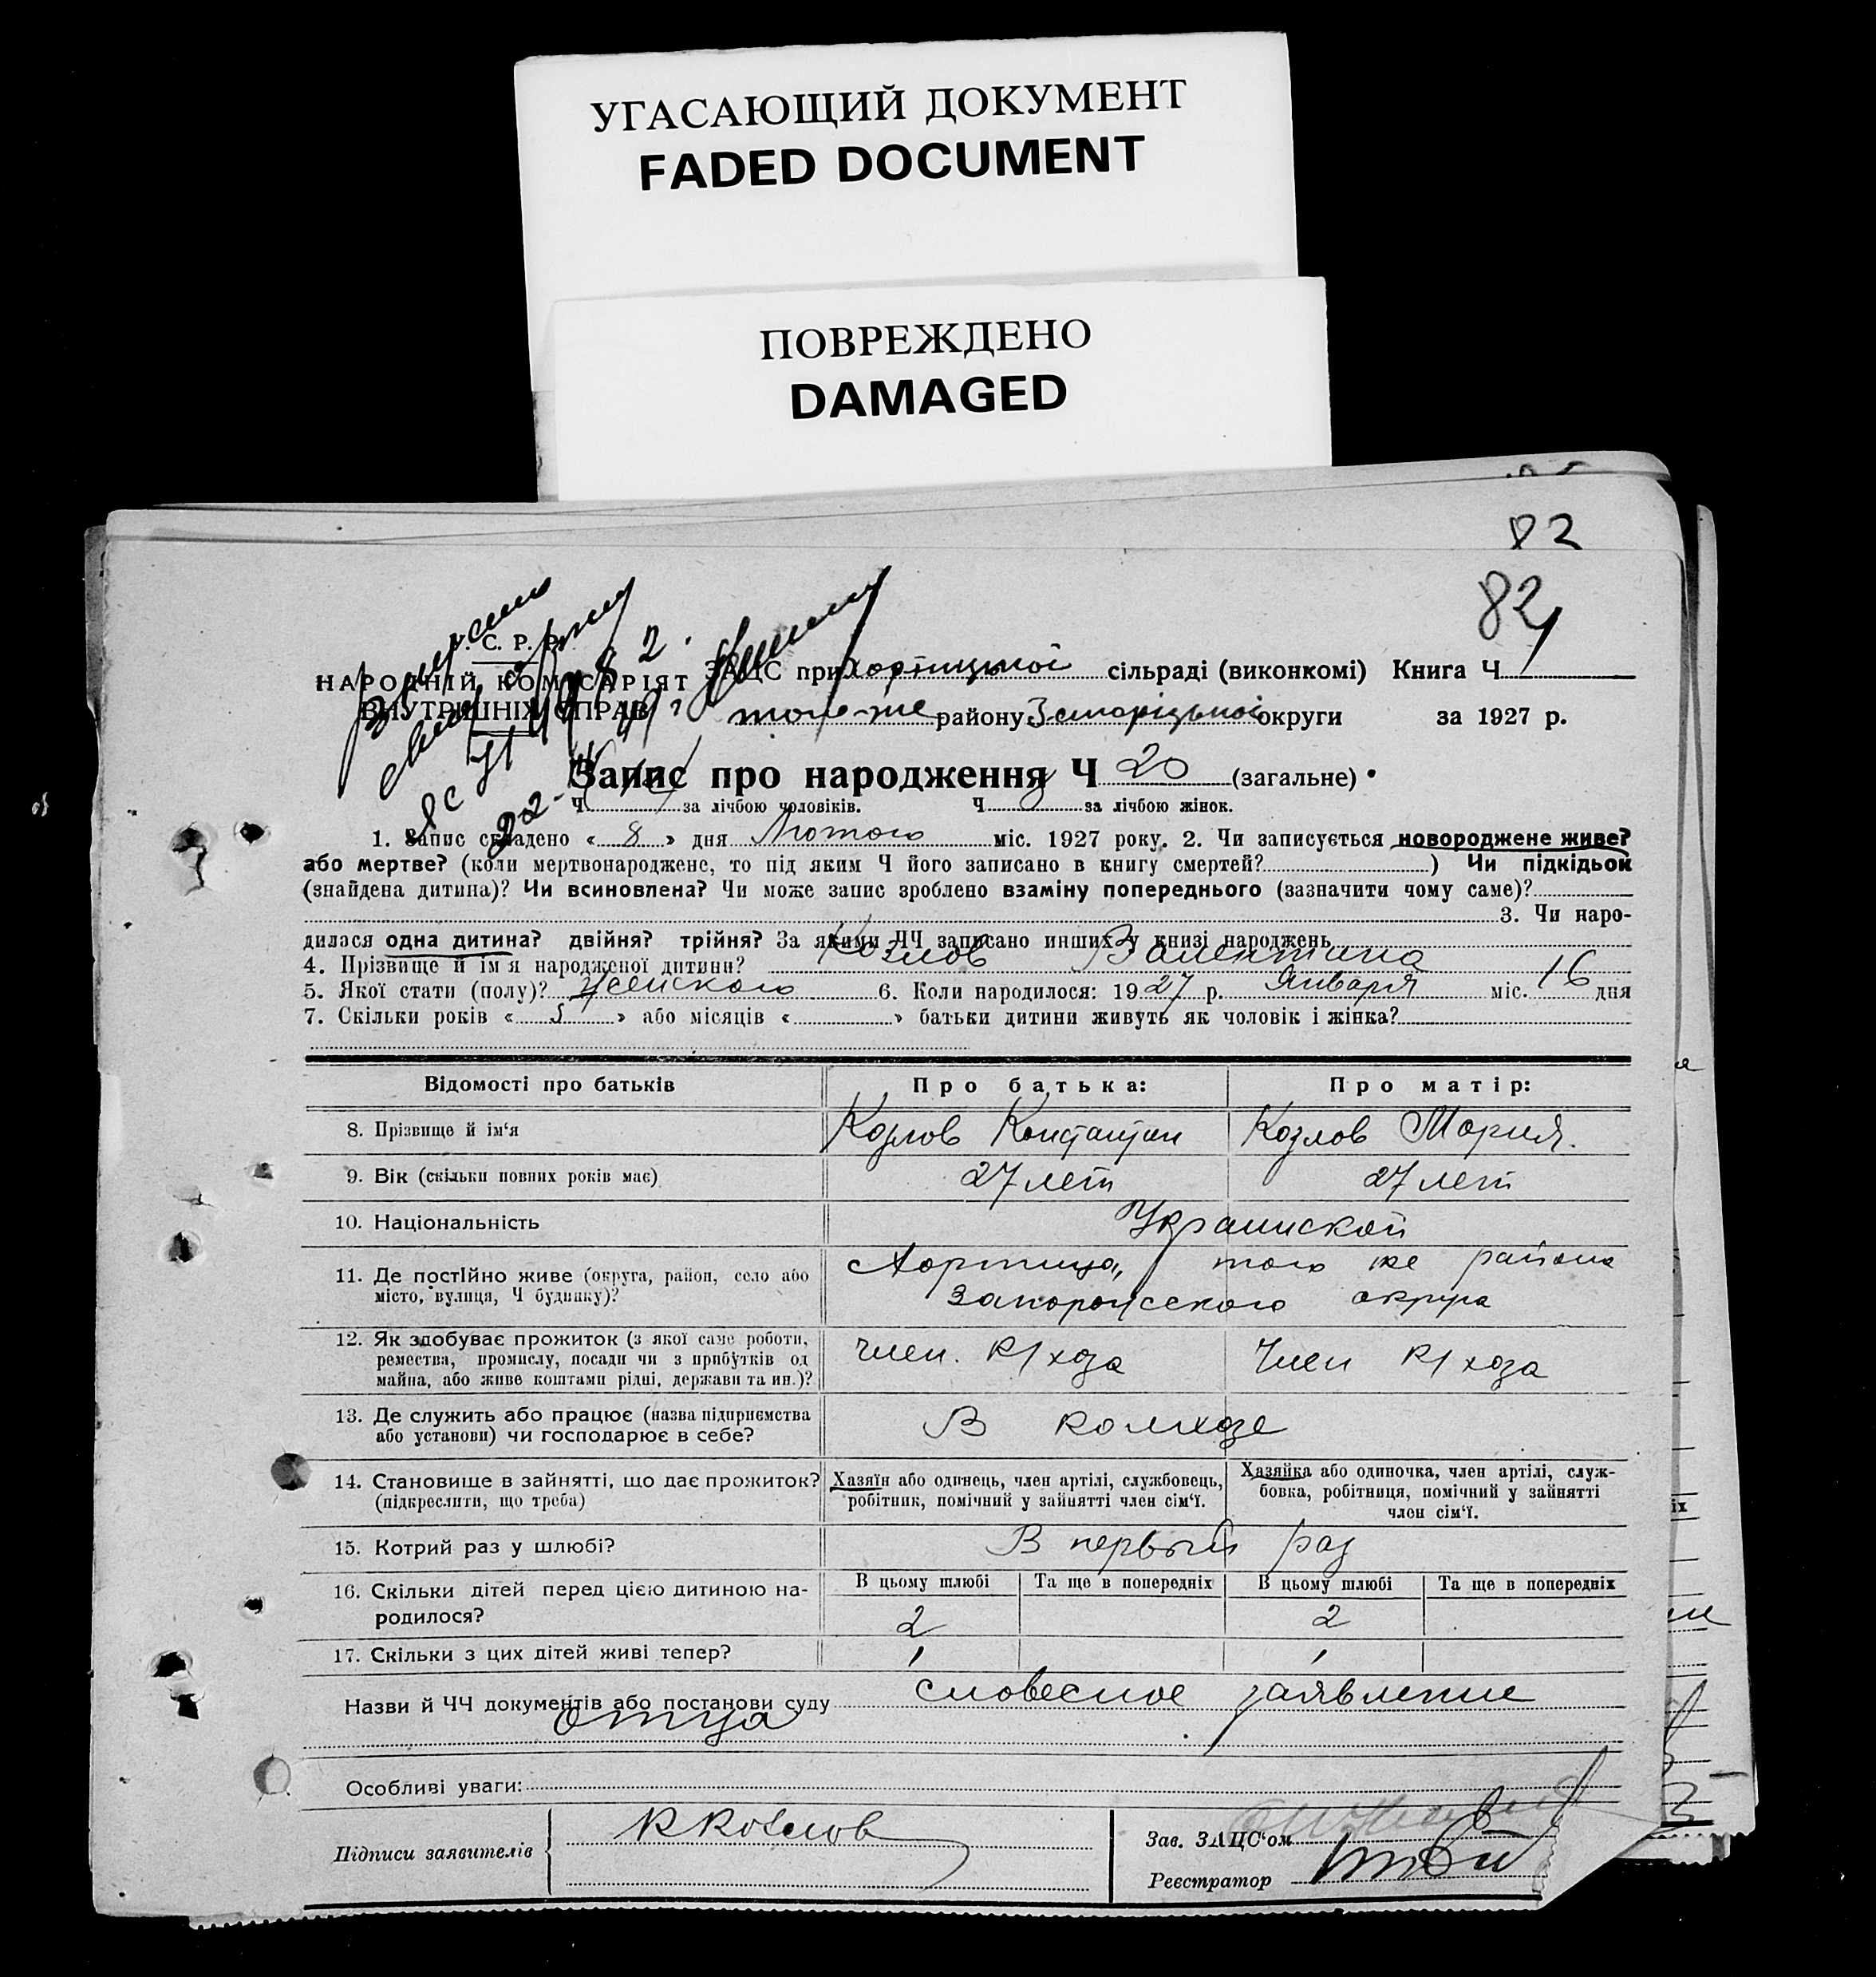 УГАСАЮЩИЙ ДОКУМЕНТ
FADED DOCUMENT
ПОВРЕЖДЕНО
DAMAGED
82
82
У. С. Р. Р.
НАРОДНІЙ КОМІСАРІЯТ
ВНУТРІШНІХ СПРАВ
ЗАЦС при Хортицькой сільраді (виконкомі) Книга Ч
того-же району Запоріцькой округи за 1927 р.
Запис про народження Ч 20 (загальне)
Ч за лічбою чоловіків. Ч за лічбою жінок.
1. Запис складено « 8 » дня Лютого міс. 1927 року. 2. Чи записується новороджене живе?
або мертве? (коли мертвонароджене, то під яким Ч його записано в книгу смертей? ) Чи підкідьок
(знайдена дитина)? Чи всиновлена? Чи може запис зроблено взаміну попереднього (зазначити чому саме)?
3. Чи наро-
дилася одна дитина? двійня? трійня? За якими ЧЧ записано инших у книзі народжень
4. Прізвище й ім'я народженої дитини? Козлов Валентина
5. Якої стати (полу)? Женского 6. Коли народилося: 1927 р. Января міс. 16 дня
7. Скільки років « 5 » або місяців « » батьки дитини живуть як чоловік і жінка?
Відомості про батьків Про батька: Про матір:
8. Прізвище й ім'я Козлов Константин Козлов Мария.
9. Вік (скільки повних років має) 27 лет 27 лет
10. Національність Украинской
11. Де постійно живе (округа, район, село або Хортица, того же района
місто, вулиця, Ч будинку)? Запорожского округа
12. Як здобуває прожиток (з якої саме роботи,
ремества, промислу, посади чи з прибутків од Член. К/хоза Член К/хоза
майна, або живе коштами рідні, держави та ин.)?
13. Де служить або працює (назва підприємства В колхозе
або установи) чи господарює в себе?
14. Становище в зайнятті, що дає прожиток? Хазяїн або одинець, член артілі, службовець, Хазяйка або одиночка, член артілі, служ-
(підкреслити, що треба) робітник, помічний у зайнятті член сім'ї. бовка, робітниця, помічний у зайнятті
член сім'ї.
15. Котрий раз у шлюбі? В первый раз
16. Скільки дітей перед цією дитиною на- В цьому шлюбі Та ще в попередніх В цьому шлюбі Та ще в попередніх
родилося? 2 2
17. Скільки з цих дітей живі тепер? 1 1
Назви й ЧЧ документів або постанови суду словесное заявление
отца
Особливі уваги:
Підписи заявителів К Козлов Зав. ЗАЦС'ом
Реєстратор